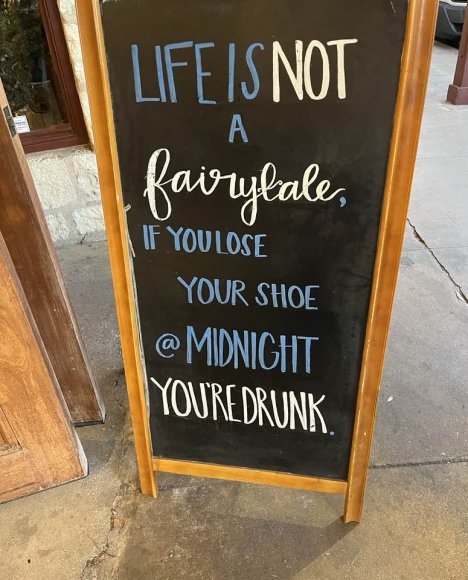 LIFE IS NOT
A
fairytale,
IF YOU LOSE
YOUR SHOE
@ MIDNIGHT
YOU'RE DRUNK.